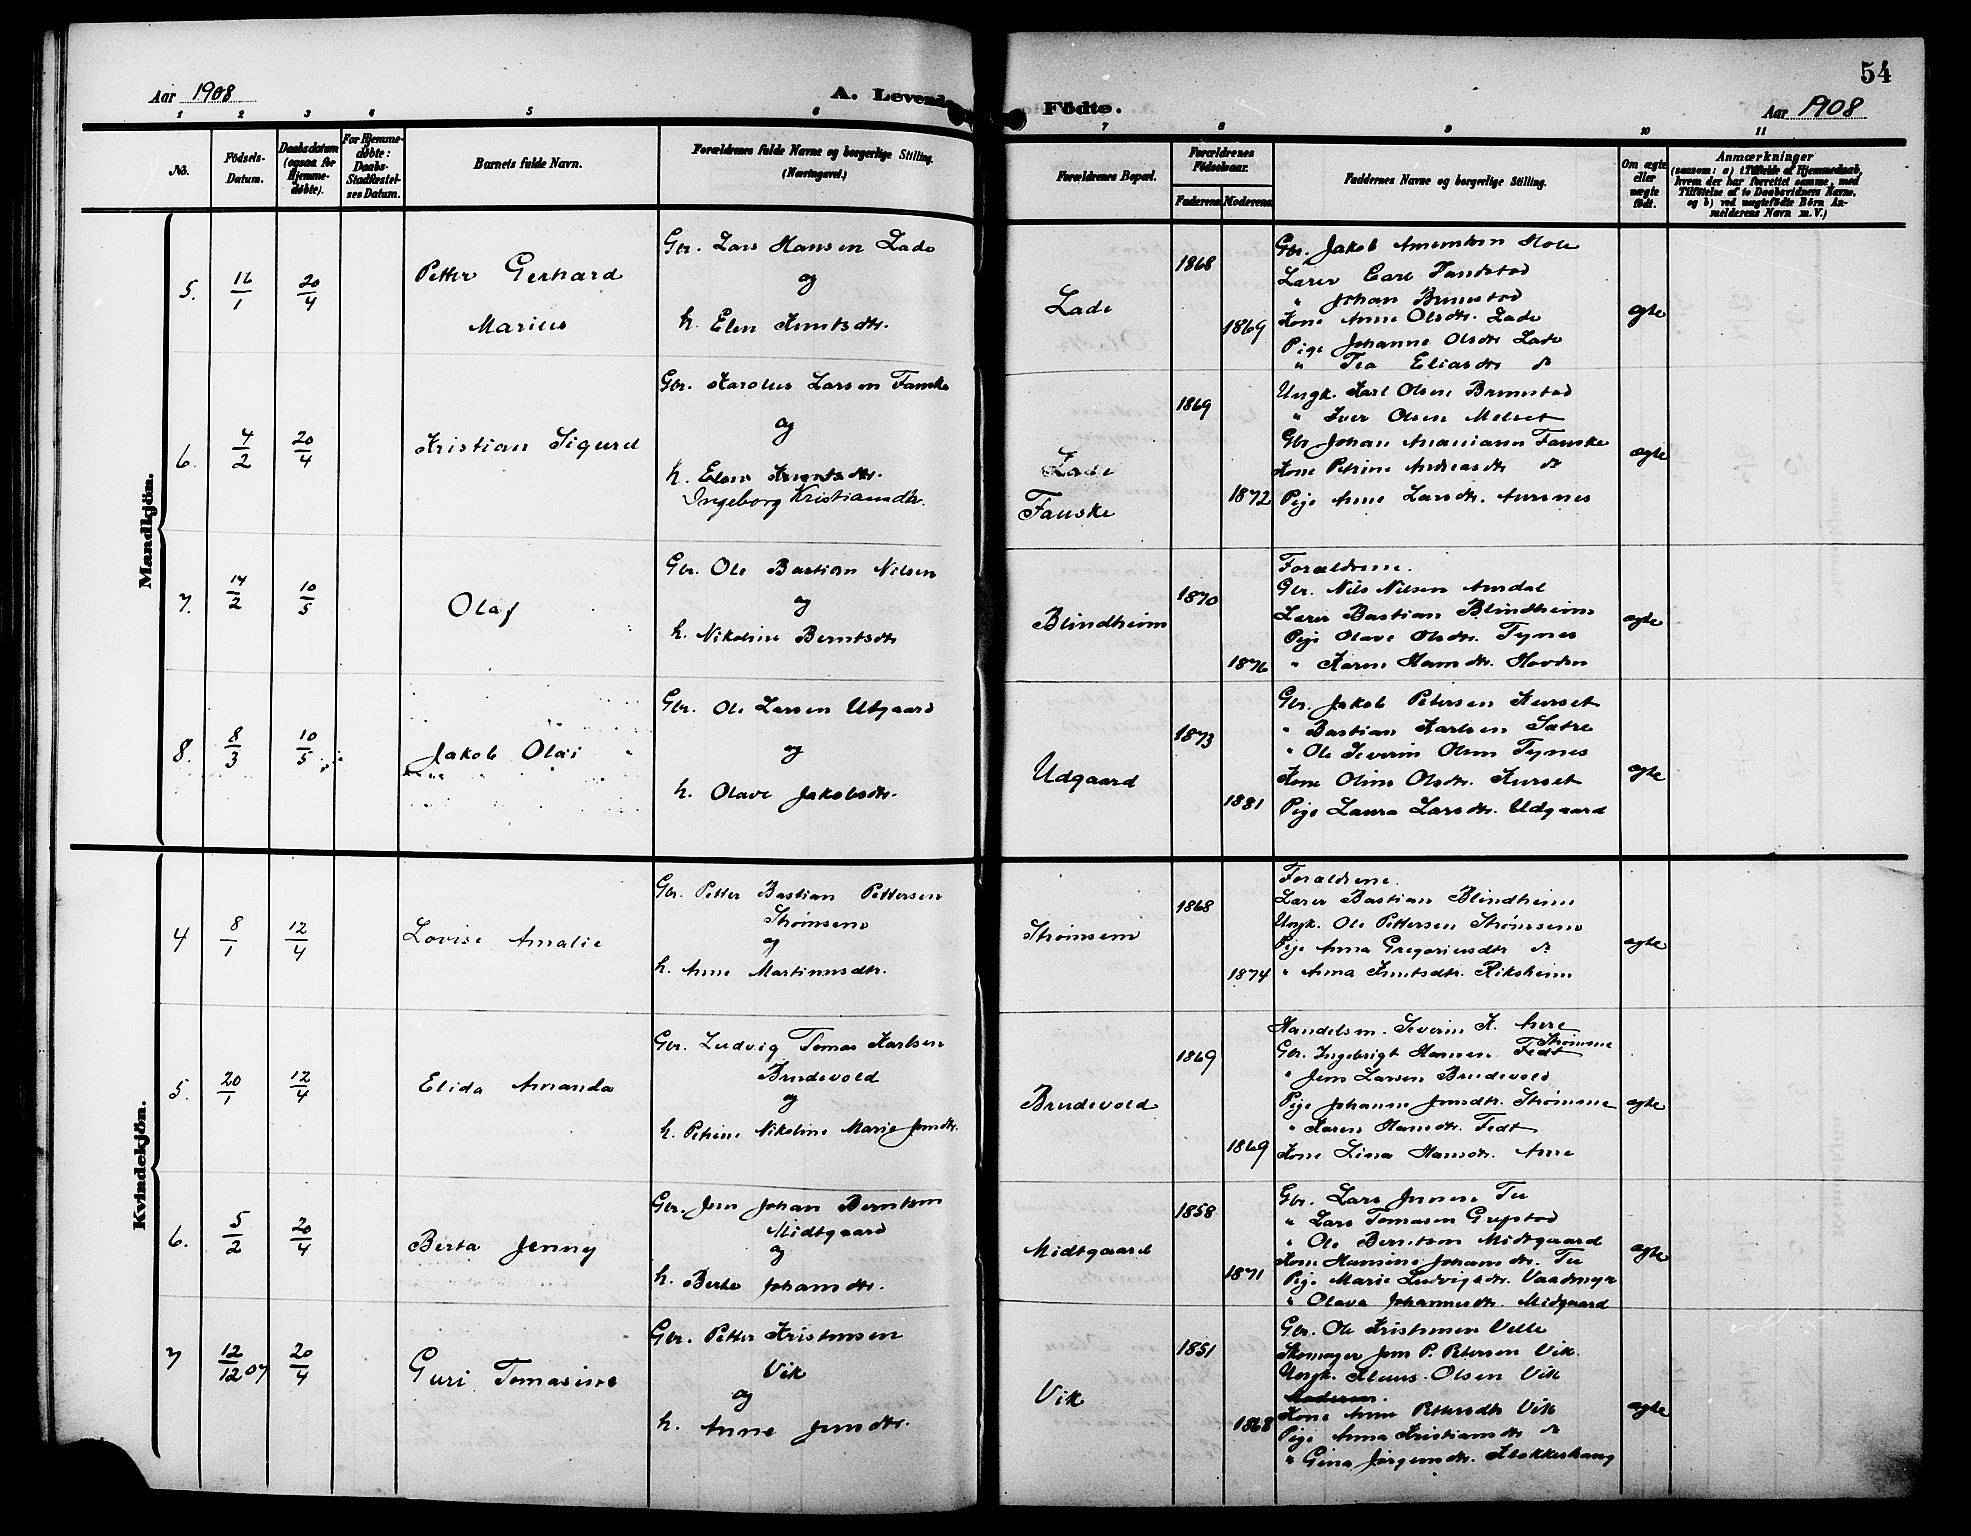 54
Aar 1908
A. Levende
Födte.
Aar 1908
1 2 3 4 5 6 7 8 9 10 11
No.
Födsels-
Datum.
Daabsdatum
(ogsaa for
Hjemme-
døbte).
For Hjemme-
døbte:
Daabs-
Stadfæstel-
ses Datum.
Barnets fulde Navn.
Forældrenes fulde Navne og borgerlige Stilling.
(Næringsvei.)
Forældrenes Bopæl.
Forældrenes
Födselsaar.
Faderens
Moderens
Faddernes Navne og borgerlige Stilling.
Om ægte
eller
uægte
født.
Anmærkninger
(saasom: a) i Tilfælde af Hjemmedaab,
hvem der har forrettet samme, med
Tilföielse af to Daabsvidners Navne,
og b) ved uægtefödte Börn An-
melderens Navn m. V.)
Mandkjön.
5.
16/1
20/4
Petter Gerhard
Marius
Gbr. Lars Hansen Lade
og
h. Elen Knutsdtr.
Lade
1868
1869
Gbr. Jakob Amundsen Hole
Lærer Carl Tandstad
" Johan Brunstad
Kone Anne Olsdtr. Lade
Pige Johanne Olsdtr Lade
" Tea Eliasdtr do
ægte
6.
4/2
20/4
Kristian Sigurd
Gbr. Karolus Larsen Fauske
og
h. Elen Knutsdtr.
Ingeborg Kristiansdtr.
Lade
Fauske
1869
1872
Ungk. Karl Olsen Brunstad
" Iver Olsen Melset
Gbr Johan Ananiasen Fauske
Kone Petrine Andreasdtr do
Pige Anne Larsdtr. Aursnes
ægte
7.
14/2
10/5
Olaf
Gbr. Ole Bastian Nilsen
og
h. Nikoline Berntsdtr
Blindheim
1870
1876
Forældrene.
Gbr. Nils Nilsen Amdal
Lærer Bastian Blindheim
Pige Olave Olsdtr. Tynes
" Karen Hansdtr. Hovden
ægte
8.
8/3
10/5
Jakob Olai
Gbr. Ole Larsen Utgaard
og
h. Olave Jakobsdtr.
Udgaard
1873
1881
Gbr. Jakob Petersen Kurset
" Bastian Karlsen Sætre
" Ole Severin Olsen Tynes
Kone Oline Olsdtr. Kurset
Pige Laura Larsdtr. Udgaard
ægte
Kvindekjön.
4
8/1
12/4
Lovise Amalie
Gbr. Petter Bastian Pettersen
Strømsem
og
h. Anne Martinusdtr.
Strømsem
1868
1874
Forældrene.
Lærer Bastian Blindheim
Ungk. Ole Pettersen Strømsem
Pige Anna Gregoriusdtr do
" Anna Knutsdtr. Riksheim
ægte
5.
20/1
12/4
Elida Amanda
Gbr. Ludvig Tomas Karlsen
Brudevold
og
h. Petrine Nikoline Marie Jonsdtr.
Brudevold
1869
1869
Handelsm. Severin K. Aure
Strømme
Gbr. Ingebrigt Hansen Fedt
" Jens Larsen Brudevold
Pige Johanne Jonsdtr. Strømme
" Karen Hansdtr. Fedt
Kone Lina Hansdtr. Aure
ægte
6.
5/2
20/4
Berta Jenny
Gbr. Jens Johan Berntsen
Midtgaard
og
h. Berte Johansdtr.
Midtgaard
1858
1871
Gbr. Lars Jensen Tu
" Lars Tomasen Grepstad
" Ole Berntsen Midtgaard
Kone Hansine Johansdtr. Tu
Pige Marie Ludvigsdtr. Vaadmyr
" Olava Johannesdtr. Midgaard
ægte
7
12/12 07
20/4
Guri Tomasine
Gbr. Petter Kristensen
Vik
og
h. Anne Jensdtr.
Vik
1851
1868
Gbr. Ole Kristensen Velle
Skomager Jens P. Petersen Vik.
Ungk. Klaus Olsen Vik
Moderen.
Kone Anne Pettersdtr Vik
Pige Anna Kristiansdtr do
" Gina Jørgensdtr. Klokkerhaug
ægte